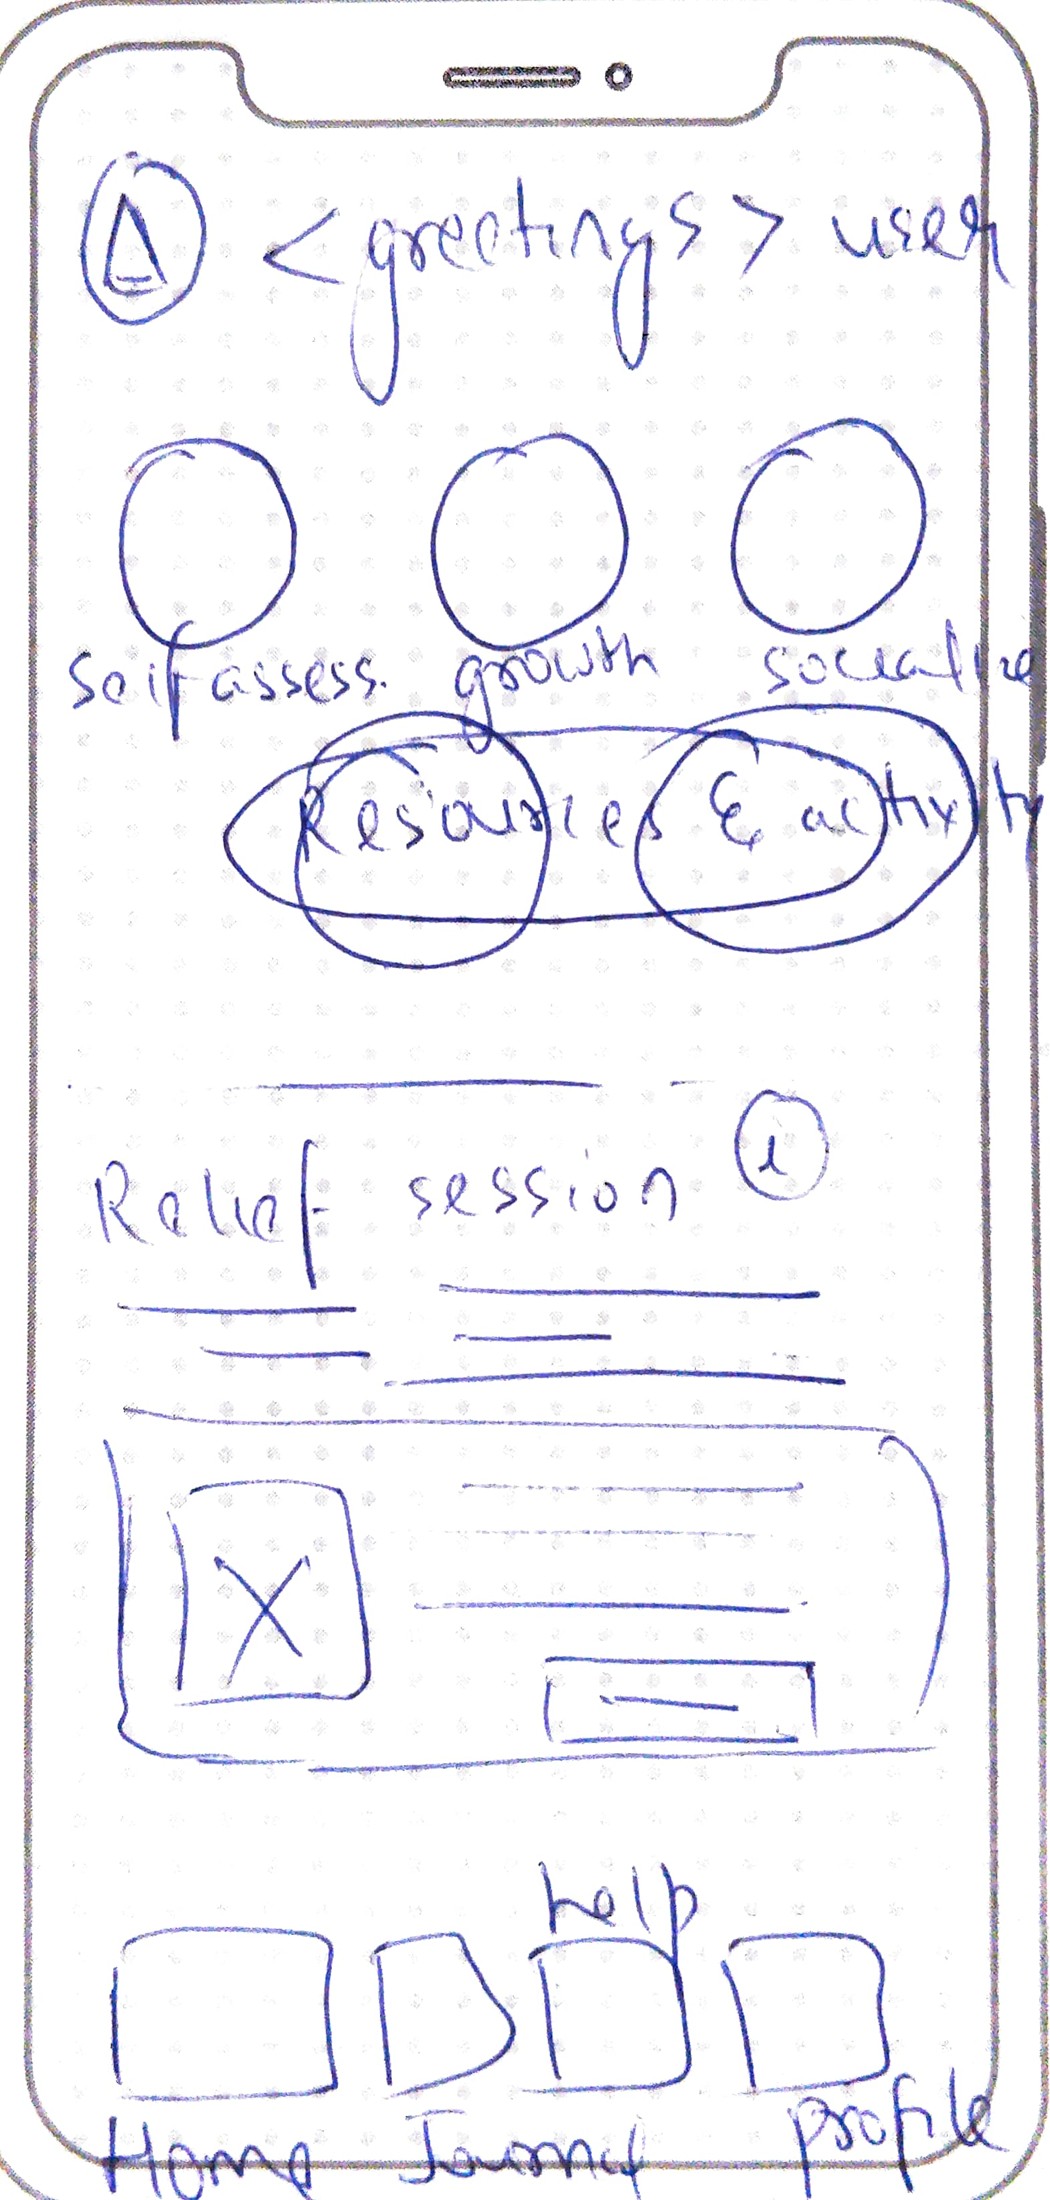 <greetings> user
self assess. growth socialize
Resources & activity
Relief session i
help
Home Journal profile